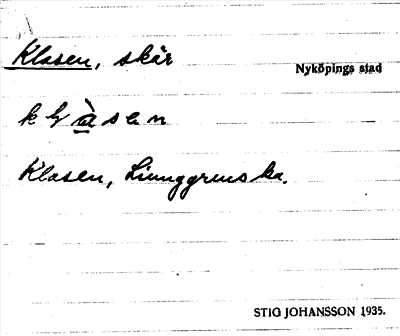 Klasen, skär
Nyköpings stad
Klasen, Ljunggrenska.
STIG JOHANSSON 1935.